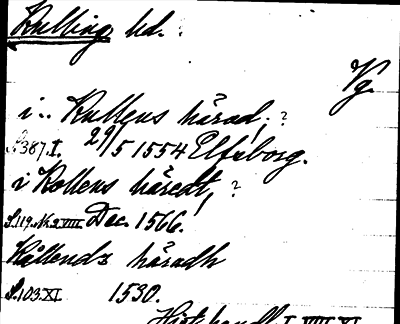 Kulling hd.
Vg.
i .. Kullens härad, ?
S. 387. I. 29/5 1554 Elfsborg.
i Kollens häredt, ?
S. 119. N. 9. VIII. Dec. 1566.
Kållendz häradh
S. 103. XI. 1530.
Hist. handl. I, VIII, XI